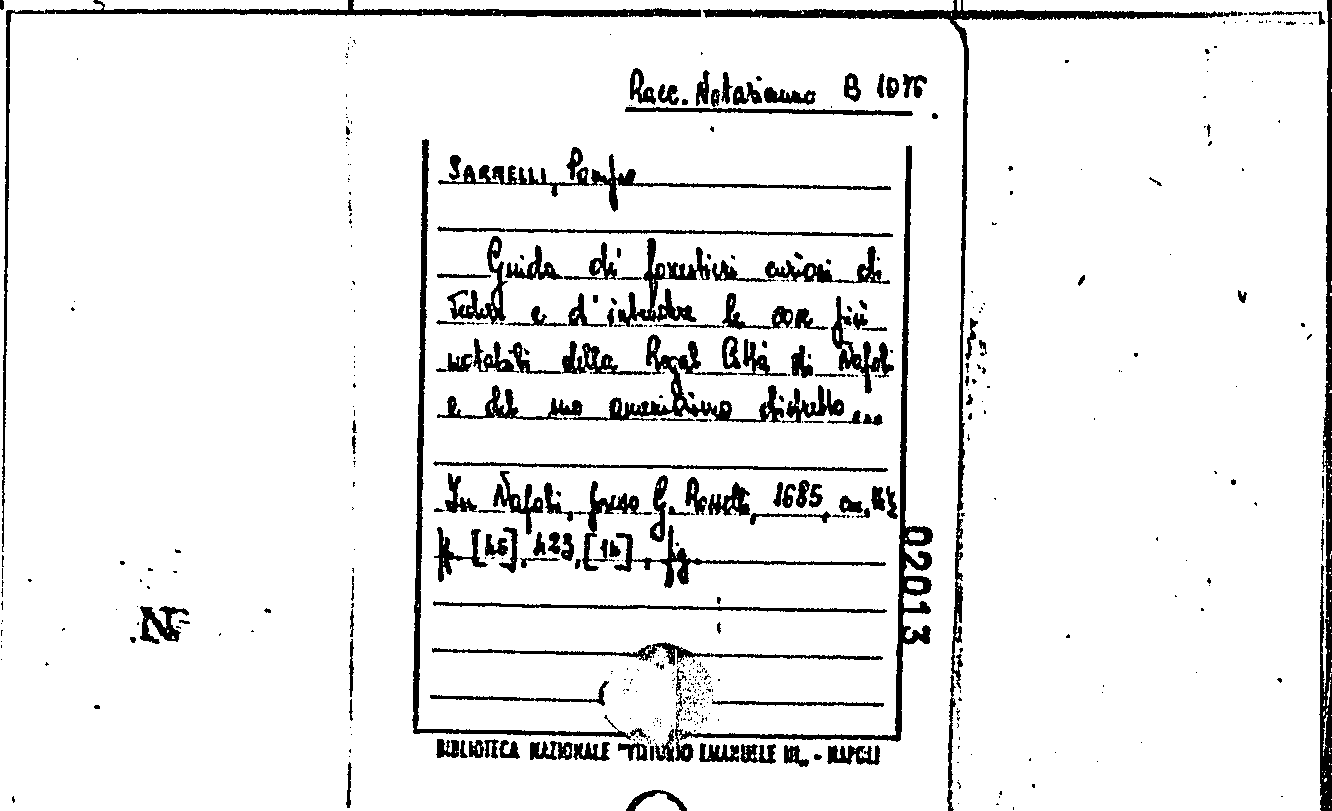 Racc. Notarianno B 1076
SARNELLI, Pompeo
Guida de' forestieri curiosi di
veder e d'intendere le cose più
notabili della Regal Città di Napoli
e del suo amenissimo distretto...
In Napoli, presso G. Rosselli, 1685, cm.
pp. [46], 423, [14], fig.
02013
N
BIBLIOTECA NAZIONALE "VITTORIO EMANUELE III" - NAPOLI